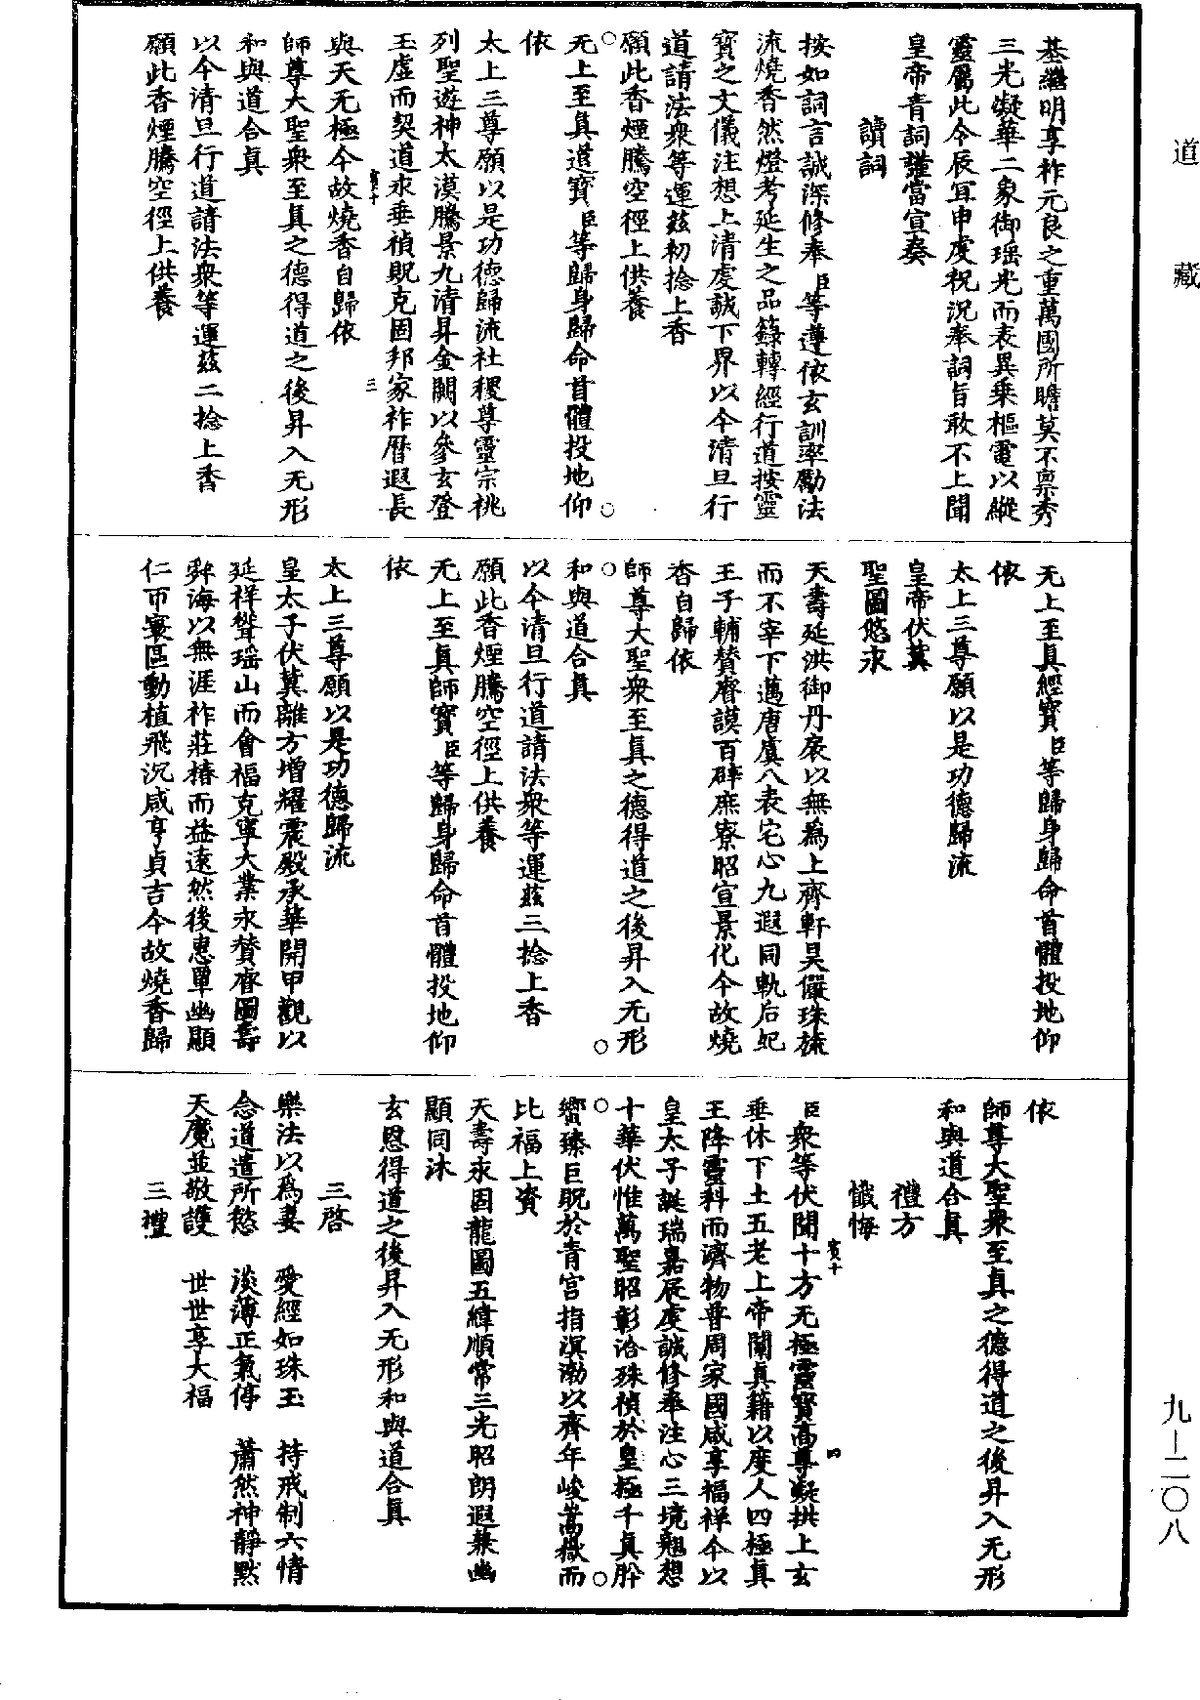 道藏
基繼明享祚元良之重萬國所瞻莫不稟秀
三光凝華二象御瑤光而表異乗樞電以縱
靈屬此今辰冝申虔祝況奉詞旨敢不上聞
皇帝青詞謹當宣奏
讀詞
按如詞言誠深修奉臣等遵依玄訓率勵法
流燒香然燈考延生之品籙轉經行道按靈
寶之文儀注想上清虔誠下界以今清旦行
道請法衆等運茲初捻上香
願此香煙騰空徑上供養
无上至真道寶臣等歸身歸命首體投地仰
依
太上三尊願以是功德歸流社稷尊靈宗祧
列聖遊神太漠騰景九清昇金闕以參玄登
玉虛而契道永垂禎貺克固邦家祚曆遐長
賓十 三
與天无極今故燒香自歸依
師尊大聖衆至真之德得道之後昇入无形
和與道合真
以今清旦行道請法衆等運茲二捻上香
願此香煙騰空徑上供養
无上至真經寶臣等歸身歸命首體投地仰
依
太上三尊願以是功德歸流
皇帝伏冀
聖圖悠永
天壽延洪御丹扆以無爲上齊軒昊儼珠旒
而不宰下邁唐虞八表宅心九遐同軌后妃
王子輔贊睿謨百辟庶寮昭宣景化今故燒
香自歸依
師尊大聖衆至真之德得道之後昇入无形
和與道合真
以今清旦行道請法衆等運茲三捻上香
願此香煙騰空徑上供養
无上至真師寶臣等歸身歸命首體投地仰
依
太上三尊願以是功德歸流
皇太子伏冀離方增耀震殿承華開甲觀以
延祥聳瑶山而會福克寧大業永贊睿圖壽
歸海以無涯祚莊椿而益遠然後惠單幽顯
仁帀寰區動植飛沉咸亨貞吉今故燒香歸
依
師尊大聖衆至真之德得道之後昇入无形
和與道合真
禮方
懺悔
臣衆等伏聞十方无極靈寶高尊凝拱上玄
賓十 四
垂休下土五老上帝闡真籍以度人四極真
王降靈科而濟物普周家國咸享福祥今以
皇太子誕瑞嘉辰虔誠修奉注心三境翹想
十華伏惟萬聖昭彰洽殊禎於皇極千真肸
蠁臻巨貺於青宫指溟渤以齊年峻嵩嶽而
比福上資
天壽永固龍圖五緯順常三光昭朗遐兼幽
顯同沐
玄恩得道之後昇入无形和與道合真
三啓
樂法以爲妻 愛經如珠玉 持戒制六情
念道遣所慾 淡薄正氣停 蕭然神靜默
天魔並敬護 世世享大福
三禮
九—二〇八